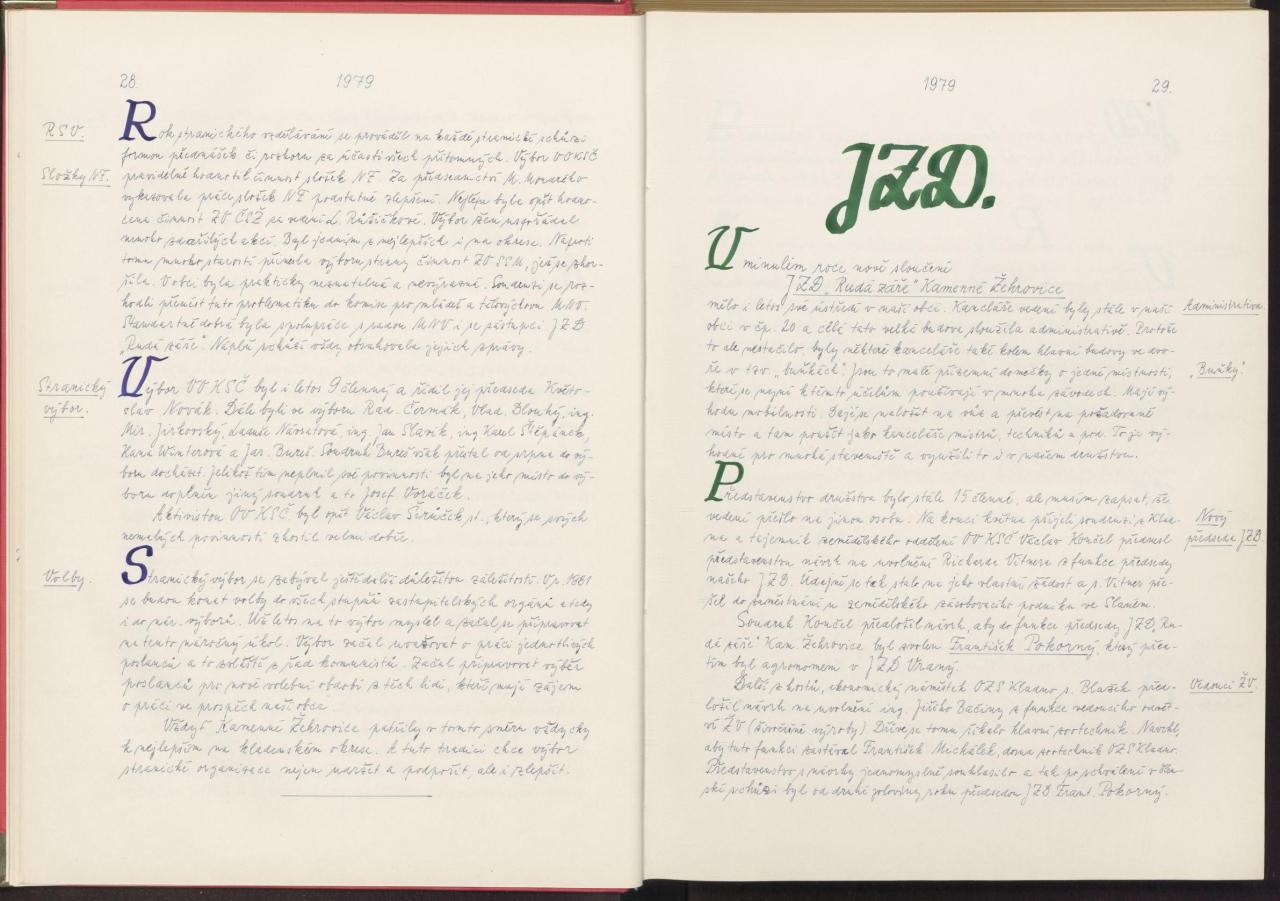 28.
1979
R.S.V.
Rok stranického vzdělávání se prováděl na každé stranické schůzi
formou přednášek či rozboru za účasti všech přítomných. Výbor VOKSČ
Složky NF.
pravidelně hodnotil činnost složek NF. Za předsednictví M.
vykazovala práce složek NF podstatné zlepšení. Nejlépe byla opět hodno-
cena činnost ZO ČSŽ za vedení L. Růžičkové. Výbor žen uspořádal
mnoho zdařilých akcí. Byl jedním z nejlepších i na okrese. Naproti
tomu mnoho starostí přinesla výboru strany činnost ZO SSM, jež se zhor-
šila. V obci byla prakticky neznatelná a nevýrazná. Soudruzi se roz-
hodli přenést tuto problematiku do komise pro mládež a tělovýchovu MNV.
Standartně dobrá byla spolupráce s radou MNV i se zástupci JZD
„Rudá záře". Náplň schůzí vždy obsahovala jejich zprávy.
Stranický
výbor.
Výbor VO KSČ byl i letos 9 členný a řídil jej předseda Květo-
slav Novák. Dále byli ve výboru Rad. Čermák, Vlad. Dlouhý, ing.
Mir. Jirkovský, Ladislav Návratová, ing. Jan Slavík, ing Karel Štěpánek,
Hana Winterová a Jar. Bureš. Soudruh Bureš však přestal od srpna do vý-
boru docházet. Jelikož tím neplnil své povinnosti byl na jeho místo do vý-
boru doplněn jiný soudruh a to Josef Voráček.
Aktivistou OV KSČ byl opět Václav st., který se svých
nemalých povinností zhostil velmi dobře.
Volby.
Stranický výbor se zabýval ještě další důležitou záležitostí. V r. 1981
se budou konat volby do všech stupňů zastupitelských orgánů a tedy
i do nár. výborů. Už letos na to výbor myslel a začal se připravovat
na tento náročný úkol. Výbor začal uvažovat o práci jednotlivých
poslanců a to zvláště z řad komunistů. Začal připravovat výběr
poslanců pro nové volební období z těch lidí, kteří mají zájem
o práci ve prospěch naší obce.
Vždyť Kamenné Žehrovice patřily v tomto směru vždycky
k nejlepším na kladenském okrese. A tuto tradici chce výbor
stranické organizace nejen udržet a podpořit, ale i zlepšit.
1979
29.
JZD.
V minulém roce nově sloučené
JZD „Rudá záře" Kamenné Žehrovice
mělo i letos své ústředí v naší obci. Kanceláře vedení byly stále v naší
Administrativa
obci v čp. 20 a celá tato velká budova sloužila administrativě. Protože
to ale nestačilo, byly některé kanceláře také kolem hlavní budovy ve dvo-
ře v tzv. „buňkách". Jsou to malé přízemní domečky o jedné místnosti,
„Buňky".
které se nyní k těmto účelům používají v mnoha závodech. Mají vý-
hodu mobilnosti. Dají se naložit na vůz a převézt na požadované
místo a tam použít jako kanceláře mistrů, techniků a pod. To je vý-
hodné pro mnohá staveniště a využili to i v našem družstvu.
Představenstvo družstva bylo stále 15 členné, ale musím zapsat, že
vedení přešlo na jinou osobu. Na konci května přijeli soudruzi z Klad-
Nový
předseda JZD.
na a tajemník zemědělského oddělení OV KSČ Václav Končel přednesl
představenstvu návrh na uvolnění Richarda Vitnera z funkce předsedy
našeho JZD. Údajně se tak stalo na jeho vlastní žádost a s. Vitner pře-
šel do zaměstnání u zemědělského zásobovacího podniku ve Slaném.
Soudruh Končel předložil návrh, aby do funkce předsedy JZD „Ru-
dá záře" Kam. Žehrovice byl zvolen František Pokorný, který před-
tím byl agronomem v JZD Vraný.
Další z hostů, ekonomický náměstek OZS Kladno s. Blažek před-
Vedoucí ŽV.
ložil návrh na uvolnění ing. Jiřího Bačiny z funkce vedoucího odvět-
ví ŽV (živočišné výroby) Dříve se tomu říkalo hlavní zootechnik. Navrhl,
aby tuto funkci zastával František Michálek, zootechnik OZS Kladno.
Představenstvo s návrhy jednomyslně souhlasilo a tak po schválení v člen-
ské schůzi byl od druhé poloviny roku předsedou JZD Frant. Pokorný.